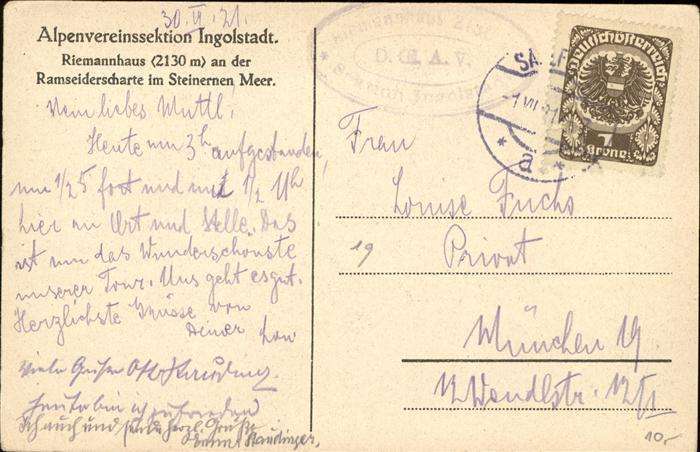 30. VI. 21.
Alpenvereinssektion Ingolstadt.
Riemannhaus (2130 m) an der
Ramseiderscharte im Steinernen Meer.
Mein liebes Muttl!
Heute um 3h aufgestanden,
um 1/2 5 fort und mit 1/2 Uh
hier an Ort und Stelle. Das
ist nun das Wunderschönste
unserer Tour. Uns geht es gut.
Herzlichste Grüsse von
Deiner
Viele Grüße Otto Staudinger
Heute bin ich zufrieden
Ich auch und sende herzl. Grüße
Staudinger.
Riemannhaus
D. Ö. A. V.
Deutschösterreich
1
Krone
1 VII 21
* a *
Frau
Louise Fuchs
19
Privat
München 19
Wendlstr. 12/I
10,-